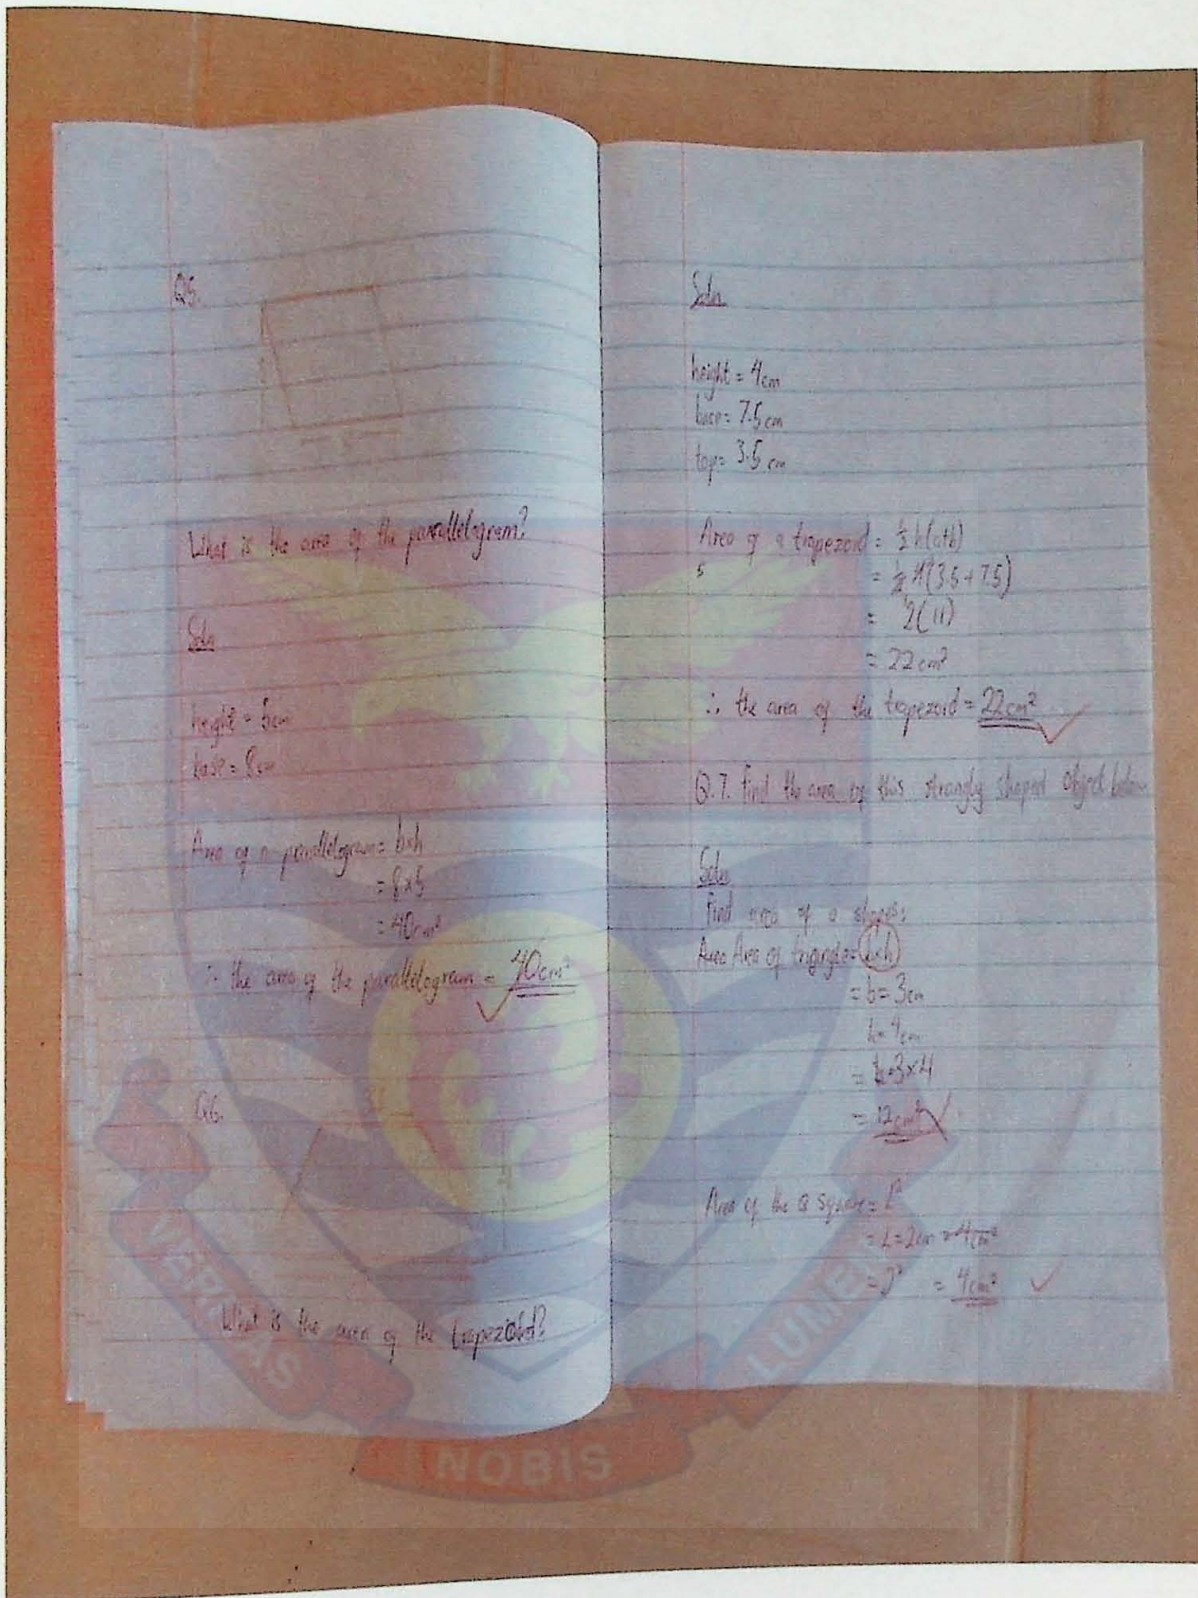 Q5.
What is the area of the parallelogram?
Soln
height = 5cm
base = 8cm
Area of a parallelogram = b×h
= 8×5
= 40cm²
∴ the area of the parallelogram = 40cm²
Q6.
What is the area of the trapezoid?
Soln
height = 4cm
base = 7.5cm
top = 3.5cm
Area of a trapezoid = ½ h(a+b)
= ½ 4(3.5+7.5)
= 2(11)
= 22cm²
∴ the area of the trapezoid = 22cm²
Q.7. Find the area of this strangly shaped object below
Soln
Find area of a shapes:
Area Area of triangle = b×h
= b = 3cm
h = 4cm
= 3×4
= 12cm²
Area of the square = L²
= L = 2cm = 4cm²
= 2² = 4cm²
VERITAS
NOBIS
LUMEN